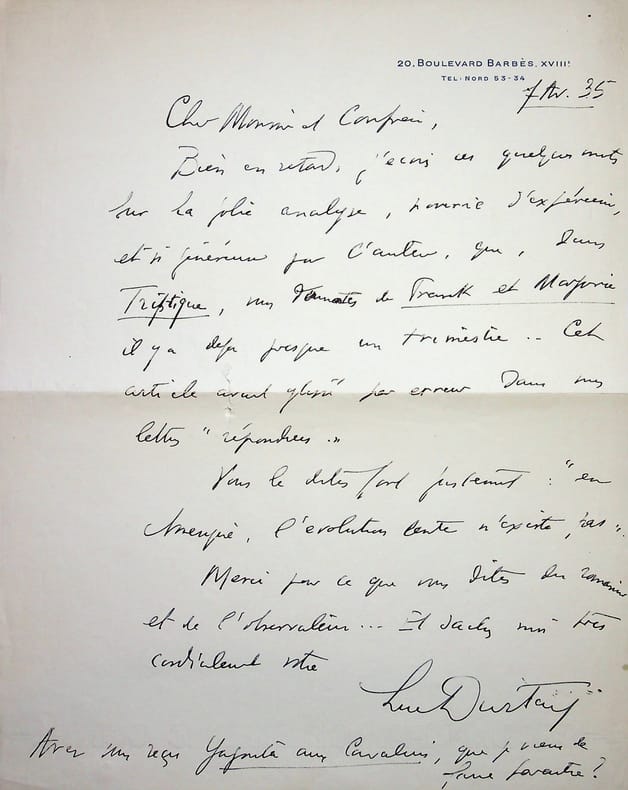 20, BOULEVARD BARBÈS, XVIIIe
TEL: NORD 53-34
7 Av. 35
Cher Monsieur et Confrère,
Bien en retard, j'écris ces quelques mots
sur la jolie analyse, nourrie d'expérience,
et si généreuse pour l'auteur, que, dans
Triptique, vous donnâtes de Frank et Marjorie
il y a déjà presque un trimestre... Cet
article avait glissé par erreur dans mes
lettres "répondues".
Vous le dites fort justement : "en
Amérique, l'évolution lente n'existe pas".
Merci pour ce que vous dites du romancier
et de l'observateur... Et sachez moi très
cordialement vôtre
Luc Durtain
Avez vous reçu Yagouta aux Cavaliers, que je viens de
faire paraître ?